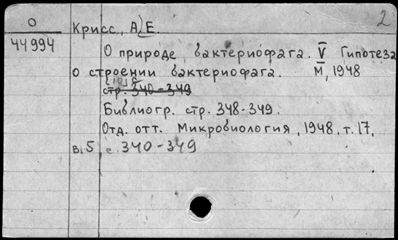 2
О
44994
Крисс, А.Е.
О природе бактериофага. V Гипотеза
о строении бактериофага. М, 1948
стр. 340-349
Библиогр. стр. 348-349.
Отд. отт. Микробиология, 1948, т. 17,
в. 5, с. 340-349